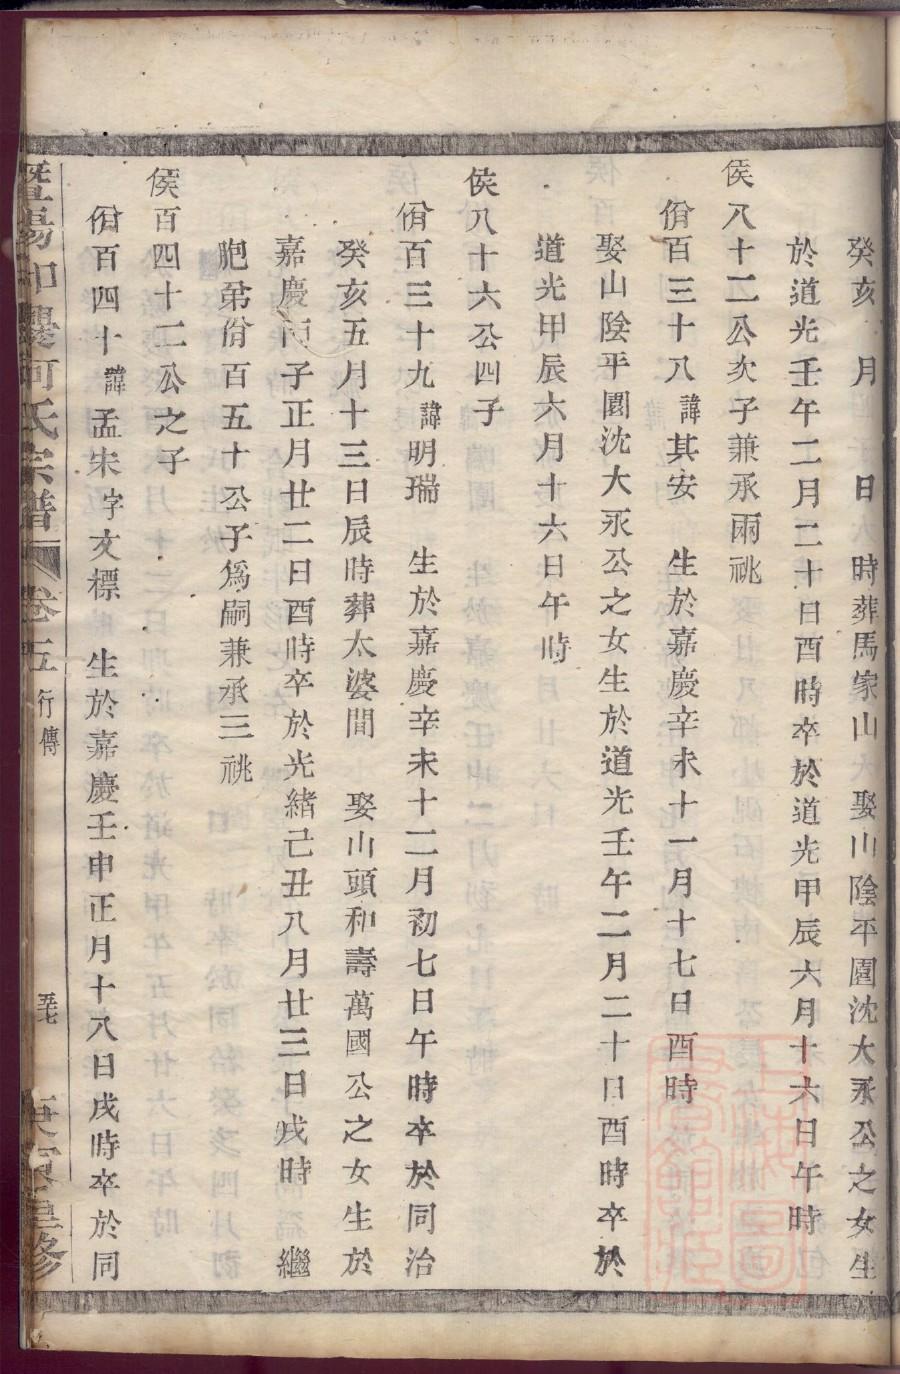 癸亥 月 日 時葬馬家山 娶山陰平園沈大永公之女生
於道光壬午二月二十日酉時卒於道光甲辰六月十六日午時
侯八十二公次子兼承兩祧
佾百三十八諱其安 生於嘉慶辛未十一月十七日酉時
娶山陰平園沈大永公之女生於道光壬午二月二十日酉時卒於
道光甲辰六月十六日午時
侯八十六公四子
佾百三十九諱明瑞 生於嘉慶辛未十二月初七日午時卒於同治
癸亥五月十三日辰時葬太婆間 娶山頭和壽萬國公之女生於
嘉慶丙子正月廿二日酉時卒於光緒己丑八月廿三日戌時 繼
胞弟佾百五十公子爲嗣兼承三祧
侯百四十二公之子
佾百四十諱孟宋字文標 生於嘉慶壬申正月十八日戌時卒於同
暨陽 何氏宗譜 卷五 行傳